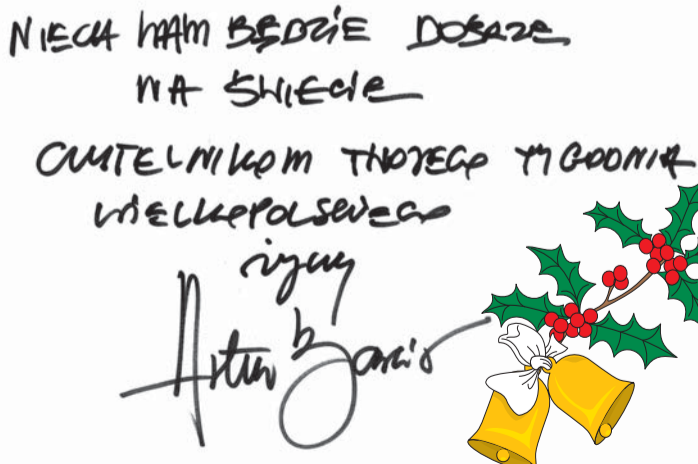 NIECH NAM BĘDZIE DOBRZE
NA ŚWIECIE
CZYTELNIKOM TWOJEGO TYGODNIA
WIELKOPOLSKIEGO
życzy
Artur Barciś